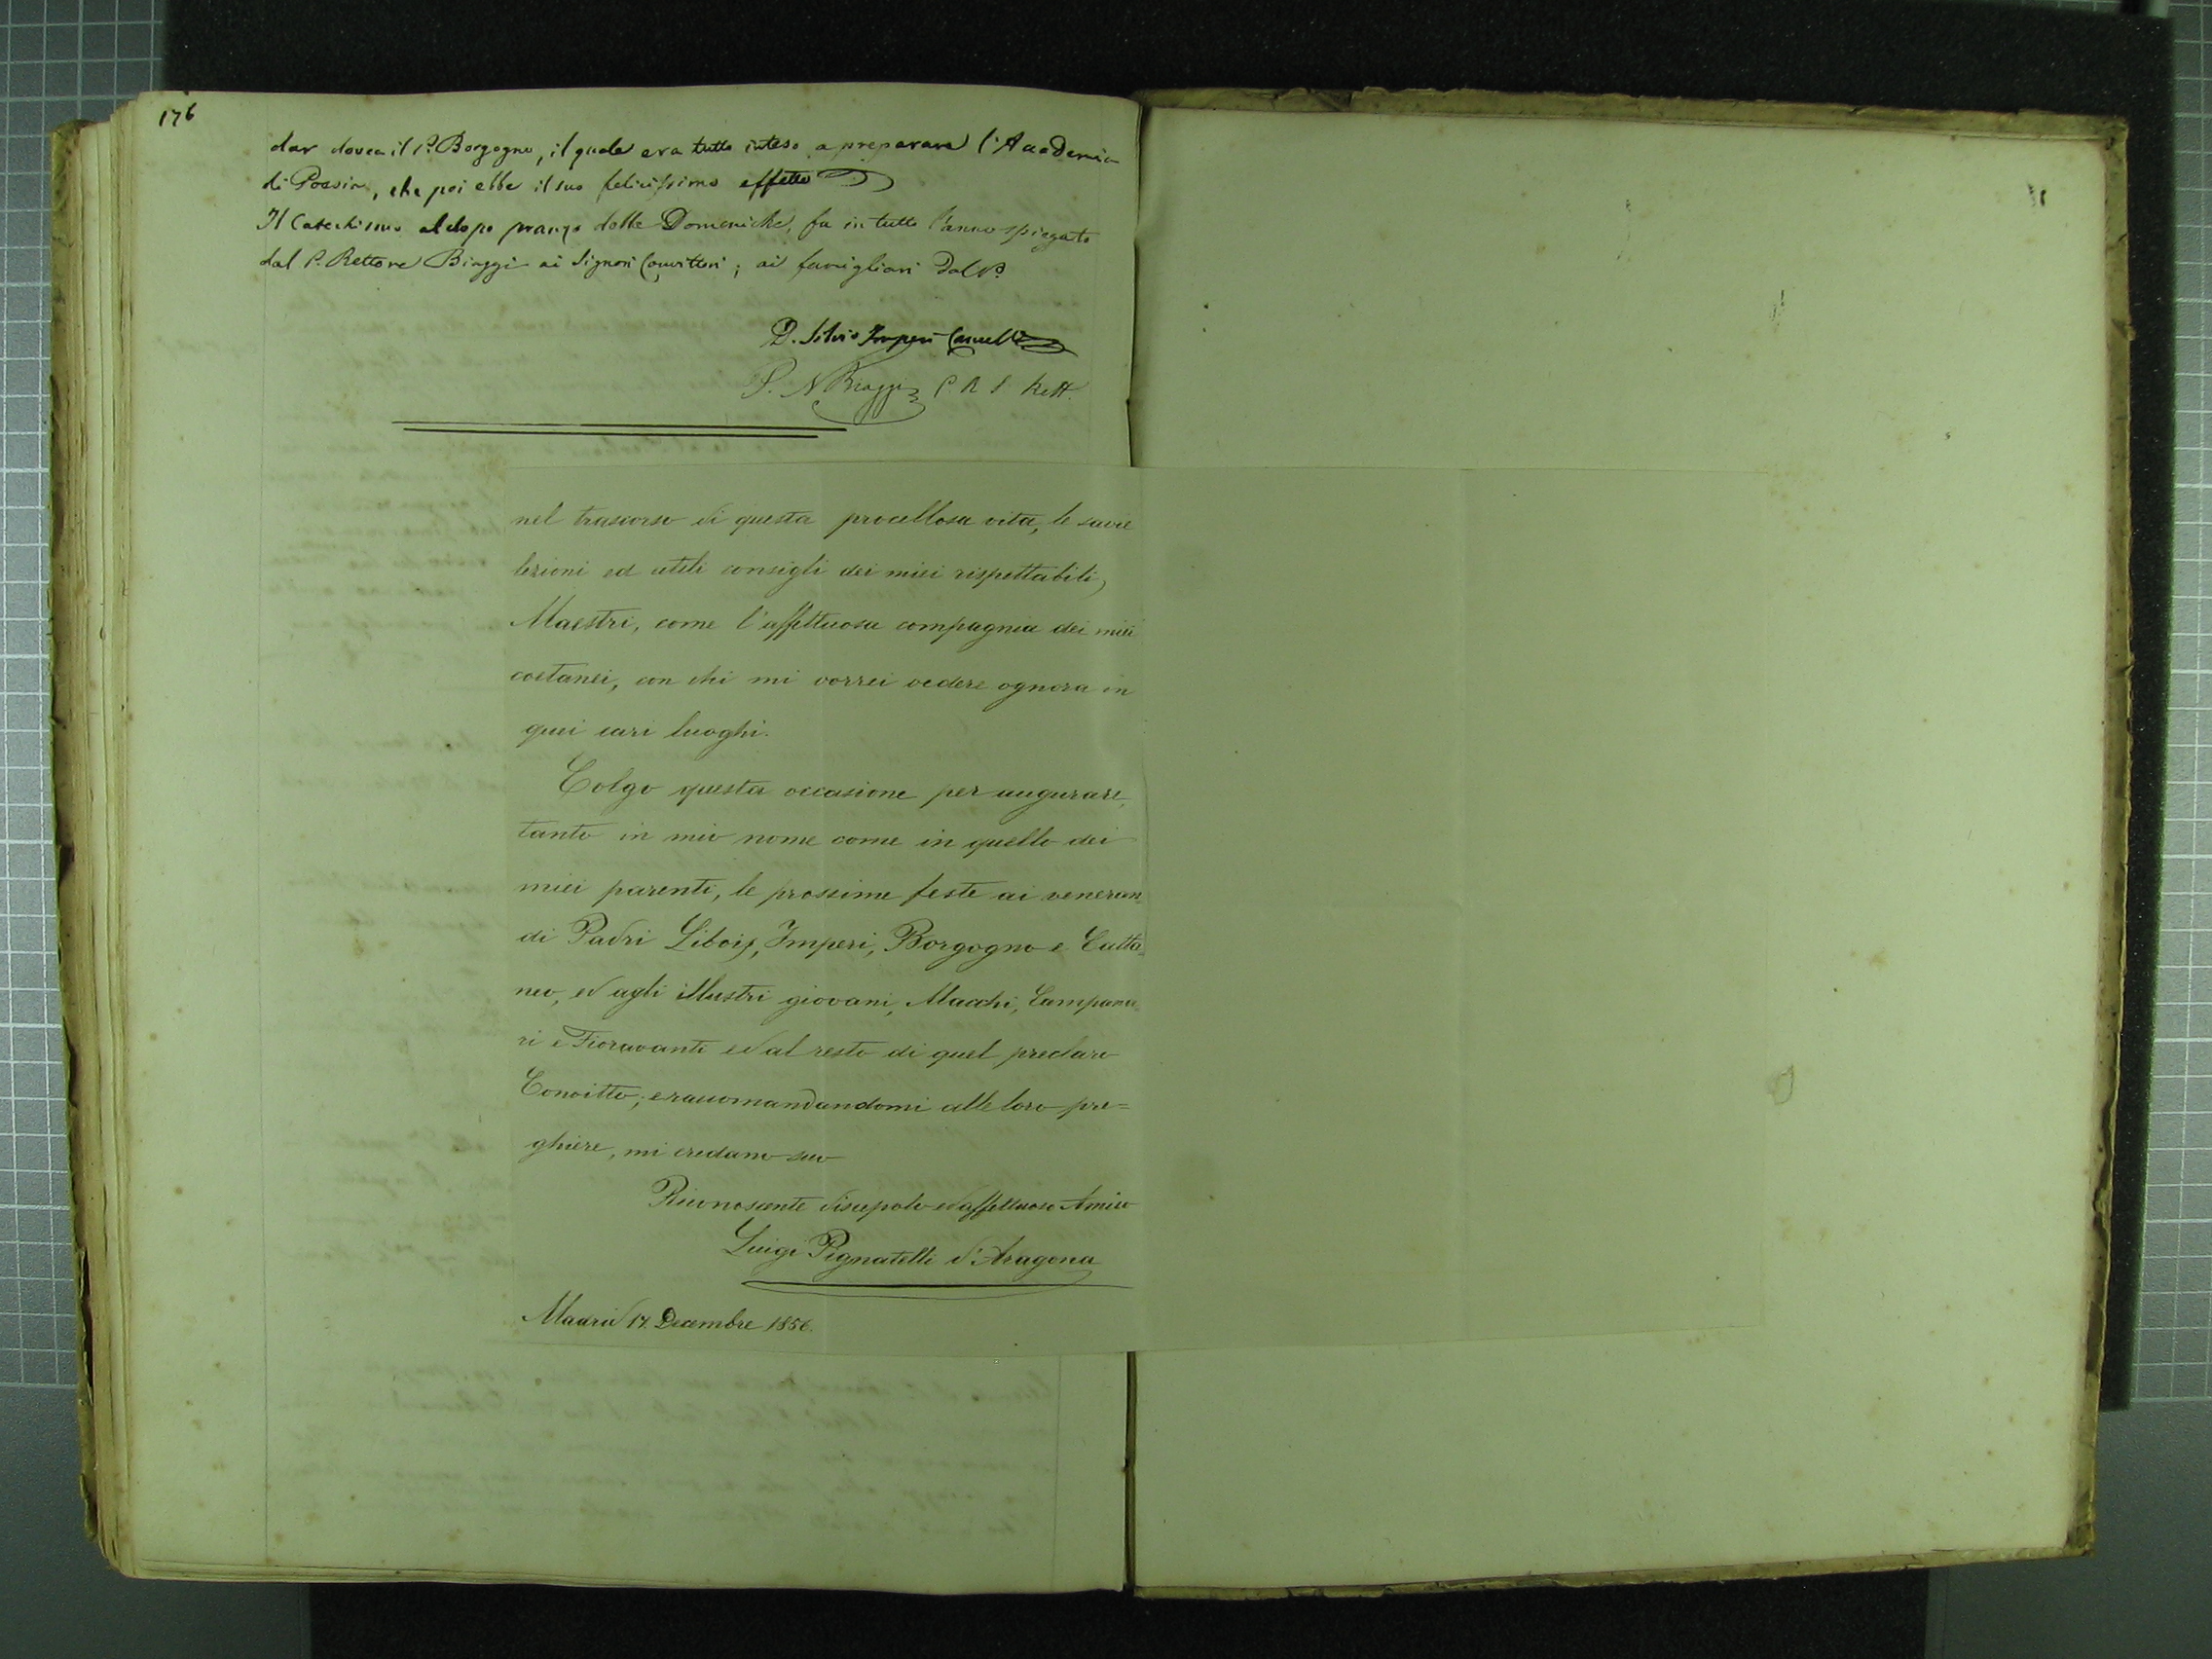 176
dar dovea il P. Borgogno, il quale era tutto inteso a preparare l'Accademia
di Poesia, che poi ebbe il suo felicissimo effetto
Il Catechismo al dopo pranzo delle Domeniche, fu in tutto l'anno spiegato
dal P. Rettore Biaggi ai Signori Convittori; ai famigliari dal P.
D. Silvio Imperi Cancell.
P. N Biaggi C. R. S. Rett.
nel trascorso di questa procellosa vita, le savie
lezioni ed utili consigli dei miei rispettabili,
Maestri, come l'affettuosa compagnia dei miei
coetanei, con chi mi vorrei vedere ognora in
quei cari luoghi.
Colgo questa occasione per augurare,
tanto in mio nome come in quello dei
miei parenti, le prossime feste ai veneran=
di Padri Libois, Imperi, Borgogno e Catta=
neo, ed agli illustri giovani, Macchi, Campana=
ri e Fioravanti ed al resto di quel preclaro
Convitto; e raccomandandomi alle loro pre=
ghiere, mi credano suo
Riconoscente discepolo ed affettuoso Amico
Luigi Pignatelli d'Aragona
Madrid 17. Decembre 1856.